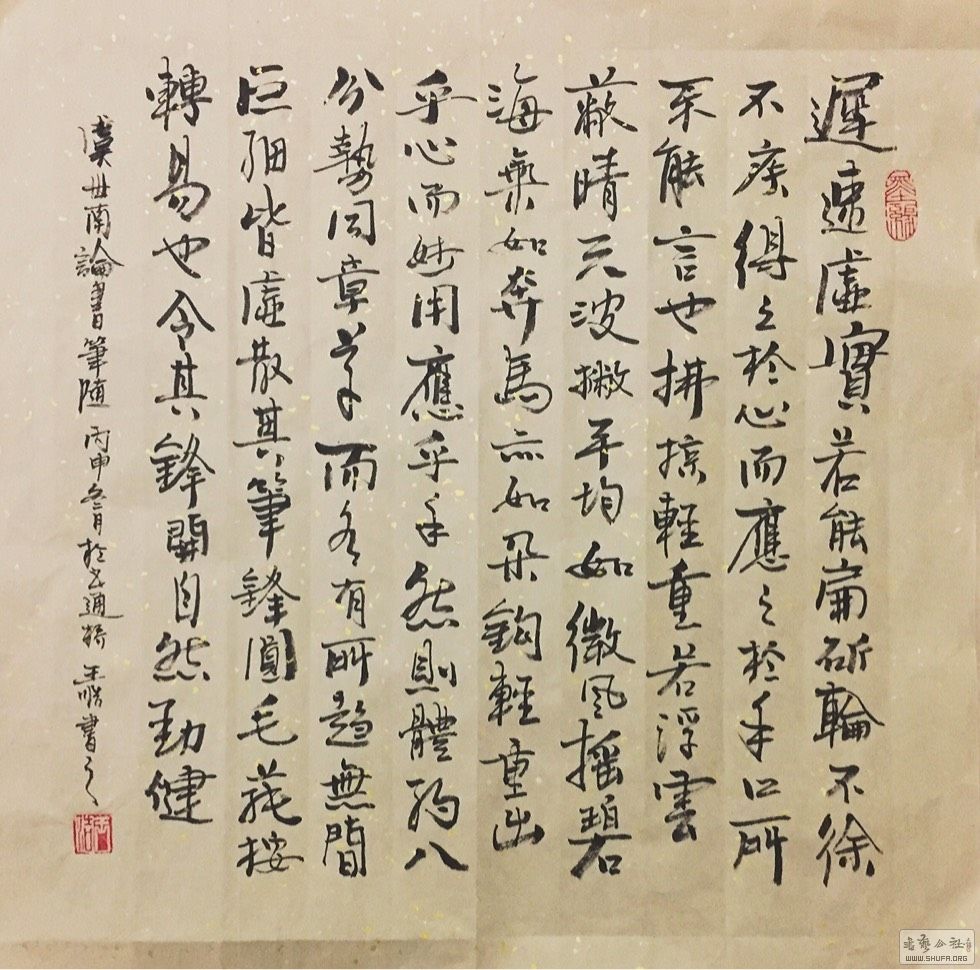 遲速虛實若能扁斫輪不徐
不疾得之於心而應之於手口所
不能言也拂掠輕重若浮雲
蔽晴天波撇平均如微風摇碧
海氣如奔馬亦如朵鈎輕重出
乎心而妙用應乎手然則體約八
分勢同章草而各有所趣無間
巨細皆虛散其筆鋒圓毛蕝按
轉易也令其鋒開自然勁健
虞世南論書筆隨 丙申冬月於通橋 王書之
书艺公社
WWW.SHUFA.ORG